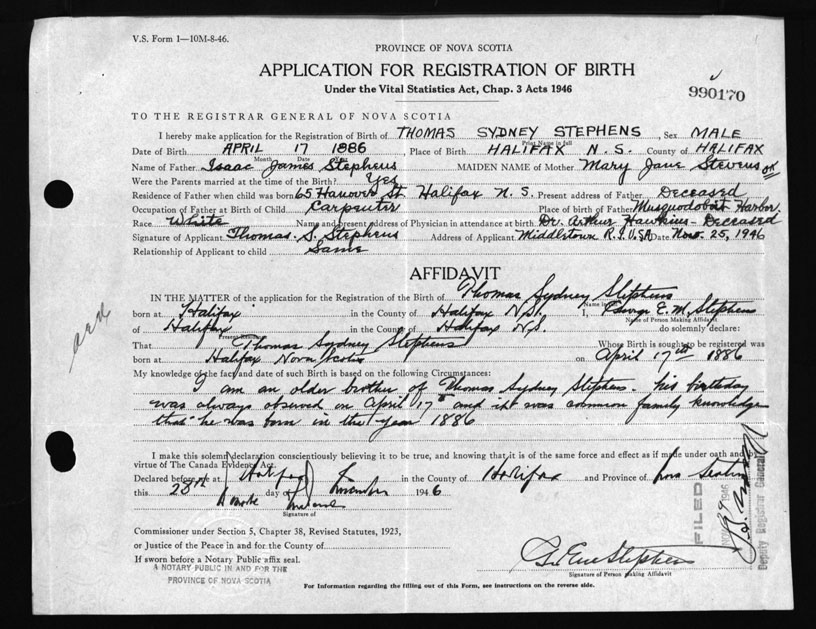 V.S. Form 1—10M-8-46.
PROVINCE OF NOVA SCOTIA
APPLICATION FOR REGISTRATION OF BIRTH
Under the Vital Statistics Act, Chap. 3 Acts 1946
990170
TO THE REGISTRAR GENERAL OF NOVA SCOTIA
I hereby make application for the Registration of Birth of THOMAS SYDNEY STEPHENS, Sex MALE
Print Name in full
Date of Birth APRIL 17 1886 Place of Birth HALIFAX N.S. County of HALIFAX
Month Date Year
Name of Father Isaac James Stephens MAIDEN NAME of Mother Mary Jane Stevens
Were the Parents married at the time of the Birth? Yes
Residence of Father when child was born 65 Hanover St. Halifax N.S. Present address of Father Deceased
Occupation of Father at Birth of Child Carpenter Place of birth of Father Musquodoboit Harbor.
Race White Name and present address of Physician in attendance at birth Dr. Arthur Hawkins - Deceased
Signature of Applicant Thomas. S. Stephens Address of Applicant Middletown R.I. USA Date Nov. 25, 1946
Relationship of Applicant to child Same
AFFIDAVIT
IN THE MATTER of the application for the Registration of Birth of Thomas Sydney Stephens
Name in full
born at Halifax in the County of Halifax N.S. I, George E. M. Stephens
Name of Person Making Affidavit
of Halifax in the County of Halifax N.S. do solemnly declare:
Present Residence
That Thomas Sydney Stephens Whose Birth is sought to be registered was
born at Halifax Nova Scotia on April 17th 1886
My knowledge of the fact and date of such Birth is based on the following Circumstances:
I am an older brother of Thomas Sydney Stephens. his birthday
was always observed on April 17th and it was common family knowledge
that he was born in the year 1886
I make this solemn declaration conscientiously believing it to be true, and knowing that it is of the same force and effect as if made under oath and by
virtue of The Canada Evidence Act.
Declared before me at Halifax in the County of Halifax and Province of Nova Scotia
this 28th day of November 1946
Signature of
FILED
1946
Deputy Registrar General
Commissioner under Section 5, Chapter 38, Revised Statutes, 1923,
or Justice of the Peace in and for the County of
If sworn before a Notary Public affix seal.
A NOTARY PUBLIC IN AND FOR THE
PROVINCE OF NOVA SCOTIA
Stephens
Signature of Person Making Affidavit
For Information regarding the filling out of this Form, see instructions on the reverse side.